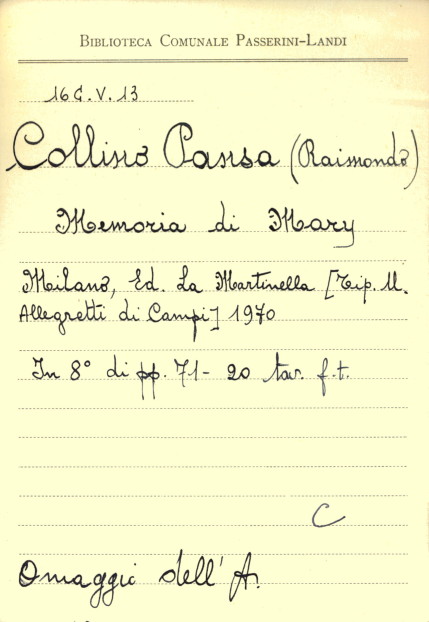 BIBLIOTECA COMUNALE PASSERINI-LANDI
16 C. V. 13
Collino Pansa (Raimondo)
Memoria di Mary
Milano, Ed. La Martinella [Tip. U.
Allegretti di Campi] 1970
In 8° di pp. 71- 20 tav. f.t.
C
Omaggio dell'A.